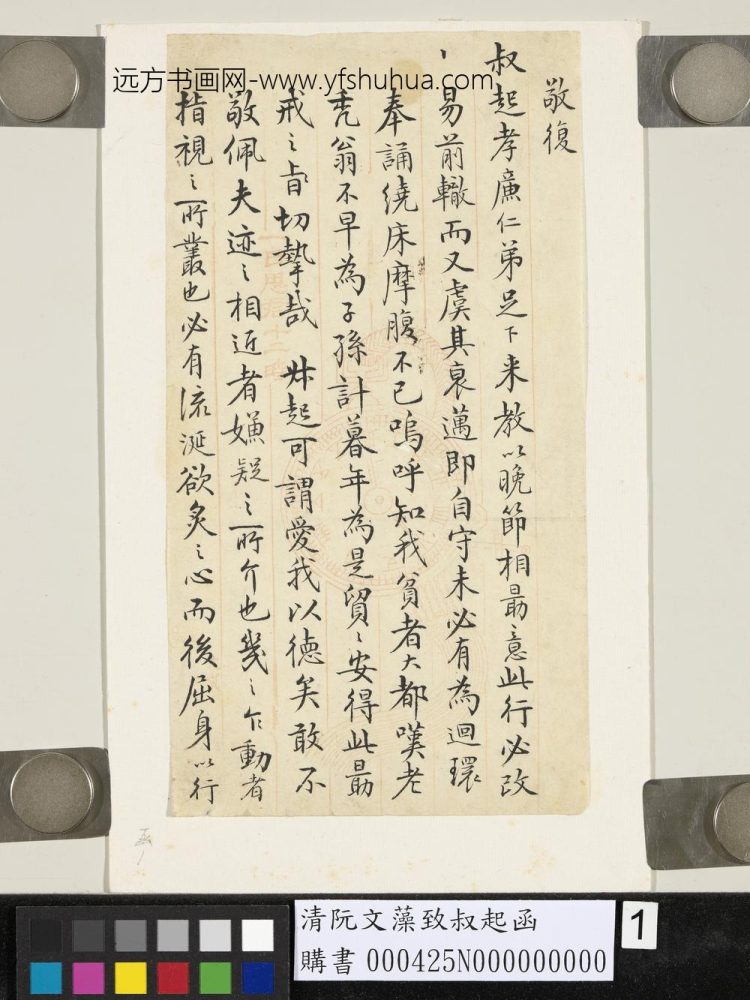 远方书画网-www.yfshuhua.com
敬復
叔起孝廉仁弟足下来教以晚節相勗意此行必改
易前轍而又虞其衰邁即自守未必有為迴環
奉誦繞床摩腹不已嗚呼知我貧者大都嘆老
禿翁不早為子孫計暮年為是貿〻安得此勗
戒之旨切摯哉 叔起可謂愛我以德矣敢不
敬佩夫迹之相近者嫌疑之所介也幾之乍動者
指視之所叢也必有流涎欲炙之心而後屈身以行
清阮文藻致叔起函
購書 000425N000000000
1